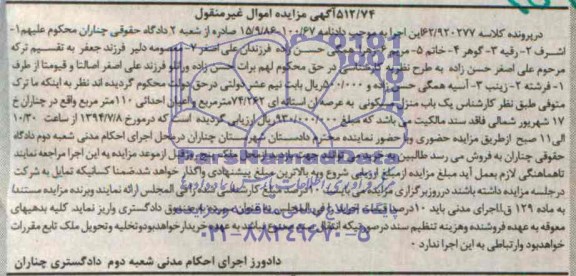 ۵۱۲/۷۴آگهی مزایده اموال غیرمنقول
درپرونده کلاسه ۶۲/۹۲۰۲۷۷این اجرا به موجب دادنامه ۱۰۰/۶۷-۱۵/۹/۸۶ صادره از شعبه ۲ دادگاه حقوقی چناران محکوم علیهم۱-
اشرف ۲- رقیه ۳- گوهر ۴- خاتم ۵- همگی حسن زاده فرزندان علی اصغر ۷- معصومه دلیر فرزند جعفر به تقسیم ترکه
مرحوم علی اصغر حسن زاده به طرح نظریه کارشناسی در حق محکوم لهم برات حسن زاده فرزند علی اصغر اصالتا و قیومتا از طرف
۱- فرشته ۲- زینب ۳- آسیه همگی حسن زاده و ۵۰۰/۰۰۰ریال بابت نیم عشر دولتی درحق دولت محکوم گردیده اند نظر به اینکه ما ترک
متوفی طبق نظر کارشناس یک باب منزل مسکونی به عرصه ان استانه ای ۷۴/۲۶۲مترمربع و اعیان احداثی ۱۱۰متر مربع واقع در چناران خ
۱۷ شهریور شمالی فاقد سند مالکیت می باشد که مبلغ ۹۳۰/۰۰۰/۰۰۰ریال ارزیابی گردیده است که درمورخ ۱۳۹۴/۷/۸ از ساعت ۱۰/۳۰
الی۱۱ صبح ازطریق مزایده حضوری وبا حضور نماینده محترم دادستان شهرستان چناران درمحل اجرای احکام مدنی شعبه دوم دادگاه
حقوقی چناران به فروش می رسد طالبین از موعد مزایده به این اجرا مراجعه نمایند
تاهماهنگی لازم بعمل آید مبلغ مزایده ازمبلغ ارزیابی شروع وبه بالاترین مبلغ پیشنهادی واگذار خواهد شدضمنا کسانیکه تمایل به شرکت
درجلسه مزایده داشته باشند درروزبرگزاری مزایده کارشناسی فی المجلس ارائه نمایند وبرنده مزایده مستندا
به ماده ۱۲۹ ق.ااجرای مدنی باید ۱۰درصد فی المجلس به صندوق دادگستری واریز نماید. کلیه بدهیهای
معوقه به عهده فروشنده وهزینه تنظیم سند درصورتیکه انتقال سند به عهده خریدارخواهدبودوتخلیه وتحویل ملک تابع مقررات
خواهدبود وارتباطی به این اجرا ندارد
دادورز اجرای احکام مدنی شعبه دوم دادگستری چناران
ParsNamadData
۰۲۱-۸۸۳۴۹۶۷۰-۵